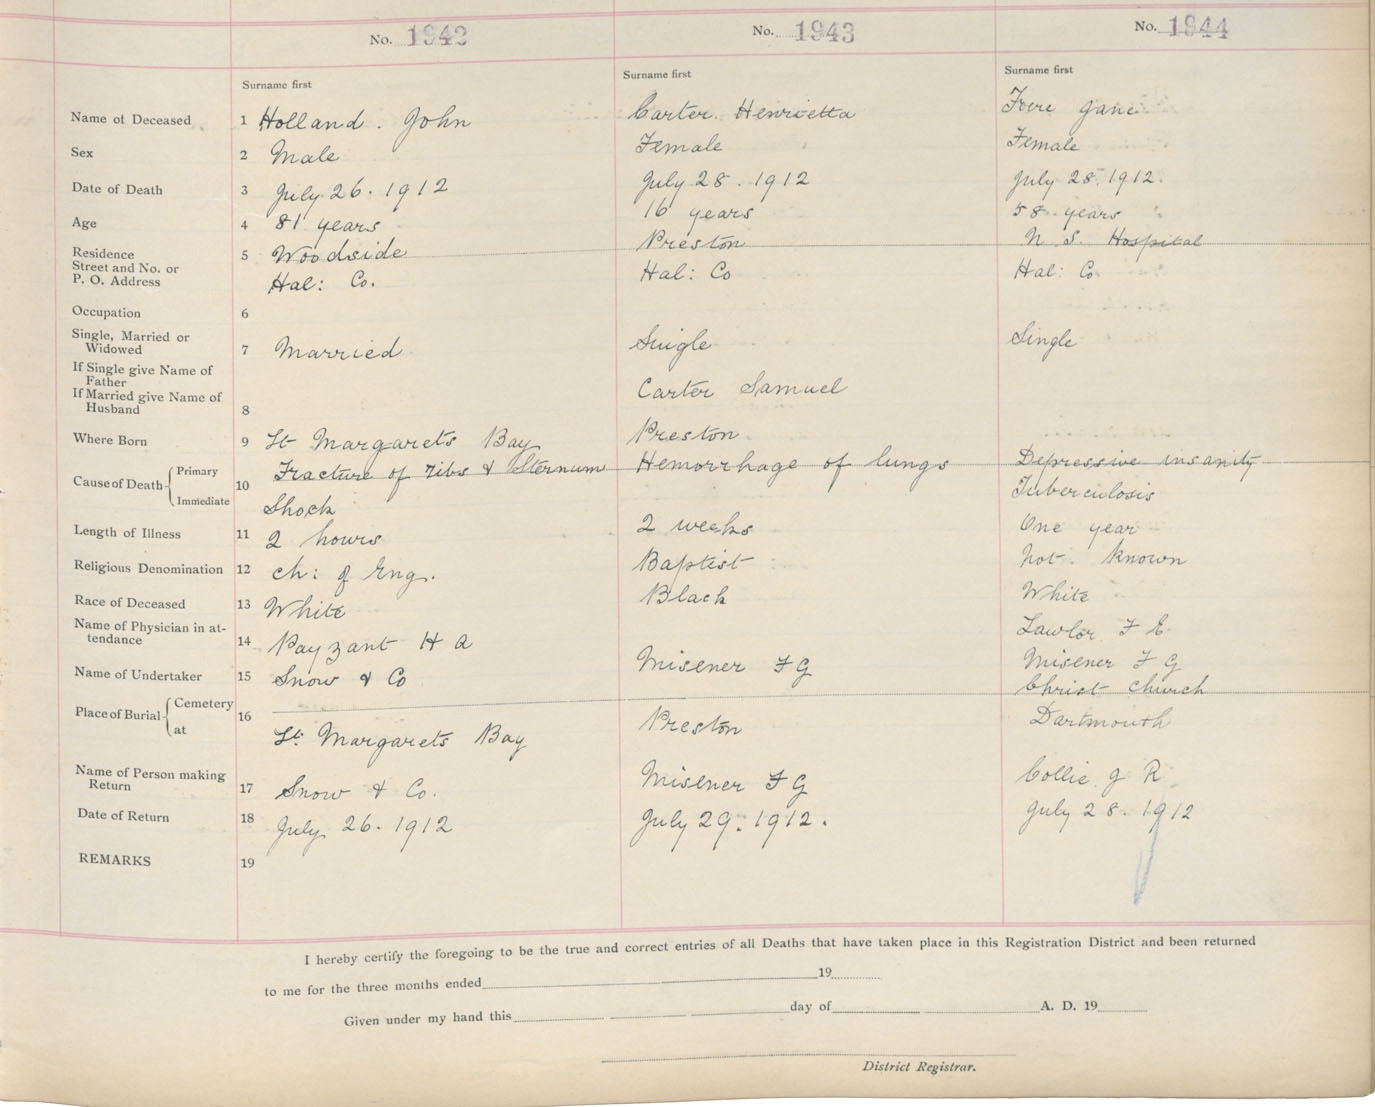 No. 1942
No. 1943
No. 1944
Surname first
Surname first
Surname first
Name of Deceased 1 Holland. John
Carter. Henrietta
Jane
Sex 2 Male
Female
Female
Date of Death 3 July 26. 1912
July 28. 1912
July 28. 1912.
Age 4 81 years
16 years
58 years
Residence
Street and No. or
P. O. Address
5 Woodside
Hal: Co.
Preston
Hal: Co
N. S. Hospital
Hal: Co
Occupation 6
Single, Married or
Widowed 7 Married
Single
Single
If Single give Name of
Father
If Married give Name of
Husband 8
Carter Samuel
Where Born 9 St Margarets Bay
Preston
Cause of Death Primary
Immediate
10 Fracture of ribs & Sternum
Shock
Hemorrhage of lungs
Depressive insanity
Tuberculosis
Length of Illness 11 2 hours
2 weeks
One year
Religious Denomination 12 Ch: of Eng.
Baptist
not known
Race of Deceased 13 White
Black
White
Name of Physician in at-
tendance 14 Payzant H A
Lawlor F E
Name of Undertaker 15 Snow & Co
Misener F G
Misener F G
Place of Burial Cemetery
at
16
St. Margarets Bay
Preston
Christ Church
Dartmouth
Name of Person making
Return 17 Snow & Co.
Misener F G
Collie J R
Date of Return 18 July 26. 1912
July 29. 1912.
July 28. 1912
REMARKS 19
I hereby certify the foregoing to be the true and correct entries of all Deaths that have taken place in this Registration District and been returned
to me for the three months ended 19
Given under my hand this day of A. D. 19
District Registrar.